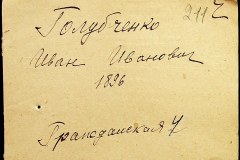 211
Голубченко
Иван Иванович
1896
Гражданская 7